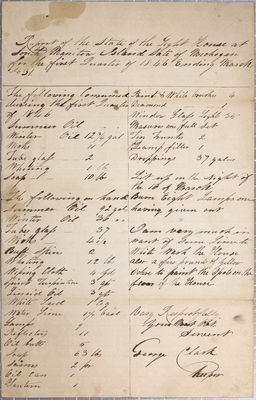 Report of the State of the Light House at
South Manitou Island State of Michigan
for the first Quarter of 1846 Ending March
31
The following consumed
during the first Quarter
of 1846
Summer Oil
Winter Oil 12 1/2 gal
Wicks 11
Tube glass 2
Whiting 1 lb
Soap 10 lb
The following on hand
Summer Oil 92 gal
Winter Oil 36
Tube glass 37
Wicks 4 1/2
Buff Skin 2
Whiting 12 lb
Wiping Cloth
Spirits Turpentine 3 qt
Linseed Oil 3 gal
White Lead 1 Keg
Lamps 9
Reflectors 11
Oil butts 5
Soap 63 lbs
Scissors 2 pr
Oil Can 1
Lantern 1
Paint & White brushes 4
Diamond 1
Window Glass Light 34
Measures one full Set
Tin trunk 2
Lamp filler
Droppings 37 gal
Lit up on the night of
the 18 of March
Burn Eight Lamps one
having given out
I am very much in
want of some Lime to
White Wash the House
also a few pounds of yellow
Ochre to paint the
floors of the House
Very Respectfully
Your Most Obt
Servent
George Clark
Keeper